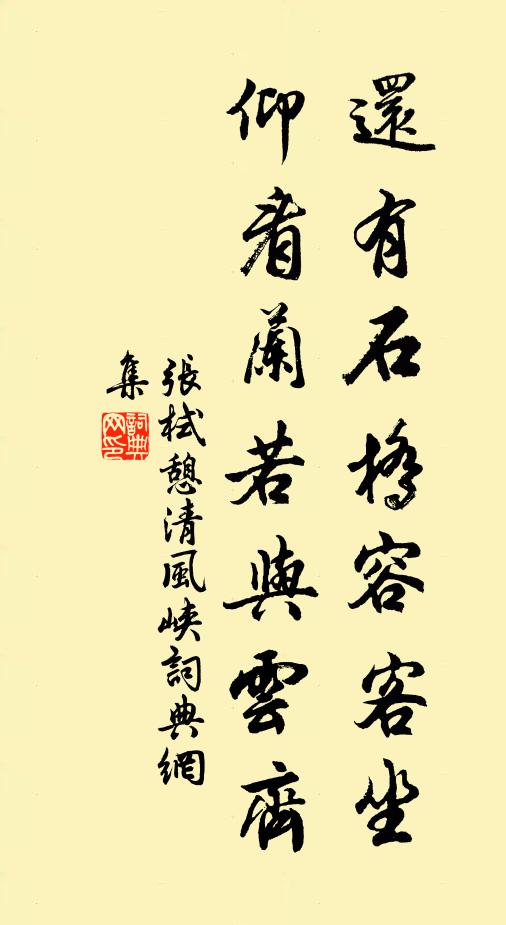 還有石橋容客坐
仰看蘭若與雲齊
張栻憩清風峽詞典網
集
詞典网印